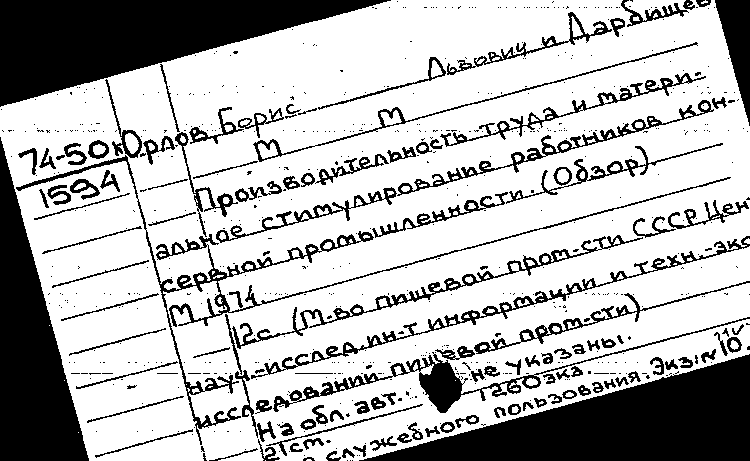 74-50к
1594
Орлов, Борис Львович и Дарбищев
м м
Производительность труда и матери-
альное стимулирование работников кон-
сервной промышленности. (Обзор).
М, 1974.
12с. (М-во пищевой пром-сти СССР, Цент
науч.-исслед. ин-т информации и техн.-эко
исследований пищевой пром-сти)
На обл. авт. не указаны.
21см. 1260экз.
служебного пользования. Экз: N 10.